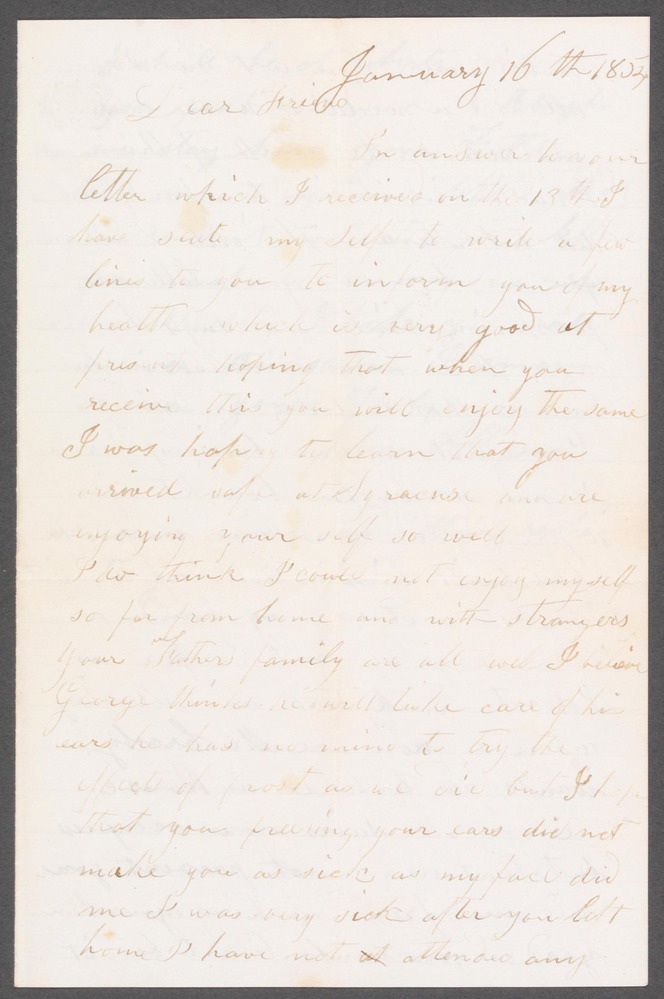 January 16 th 1854
Dear Friend
In answer to your
letter which I received on the 13 th I
have seate my self to write a few
lines to you to inform you of my
health which is very good at
present hoping that when you
receive this you will enjoy the same
I was hapy to learn that you
arrived safe at Syracuse and are
enjoying your self so well
I do think I could not enjoy myself
so far from home and with strangers
your Fathers family are all well I believe
George thinks he will take care of his
ears he has no mind to try the
effects of frost as we did but I hope
that you freezing your ears did not
make you as sick as my face did
me I was very sick after you left
home I have not attended any